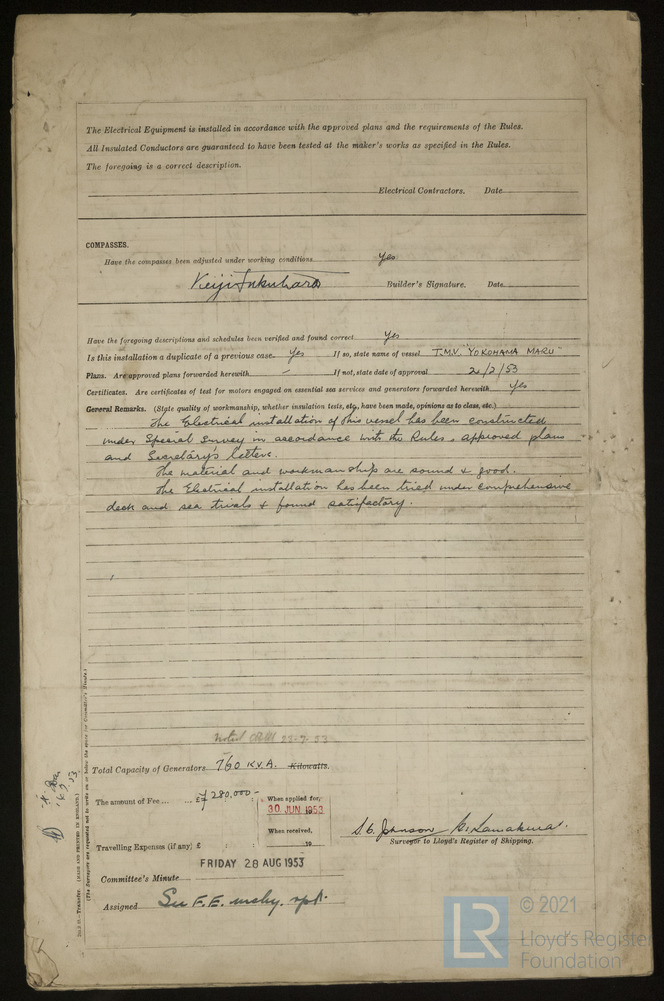 The Electrical Equipment is installed in accordance with the approved plans and the requirements of the Rules.
All Insulated Conductors are guaranteed to have been tested at the maker's works as specified in the Rules.
The foregoing is a correct description.
Electrical Contractors. Date
COMPASSES.
Have the compasses been adjusted under working conditions Yes
Keiji Fukuhara Builder's Signature. Date
Have the foregoing descriptions and schedules been verified and found correct Yes
Is this installation a duplicate of a previous case Yes If so, state name of vessel T.M.V. "YOKOHAMA MARU"
Plans. Are approved plans forwarded herewith - If not, state date of approval 2/2/53
Certificates. Are certificates of test for motors engaged on essential sea services and generators forwarded herewith Yes
General Remarks. (State quality of workmanship, whether insulation tests, etc., have been made, opinions as to class, etc.)
The Electrical installation of this vessel has been constructed
under Special Survey in accordance with the Rules, approved plans
and Secretary's letters.
The material and workmanship are sound & good.
The Electrical installation has been tried under comprehensive
deck and sea trials & found satisfactory.
Noted 28-7-53
Total Capacity of Generators 760 K.V.A. Kilowatts.
The amount of Fee 280,000-
When applied for,
30 JUN 1953
When received,
19
Travelling Expenses (if any) £
S. G. Johnson
Surveyor to Lloyd's Register of Shipping.
FRIDAY 28 AUG 1953
Committee's Minute
Assigned See F.E. mchy. rpt.
(MADE AND PRINTED IN ENGLAND.)
LR © 2021
Lloyd's Register
Foundation